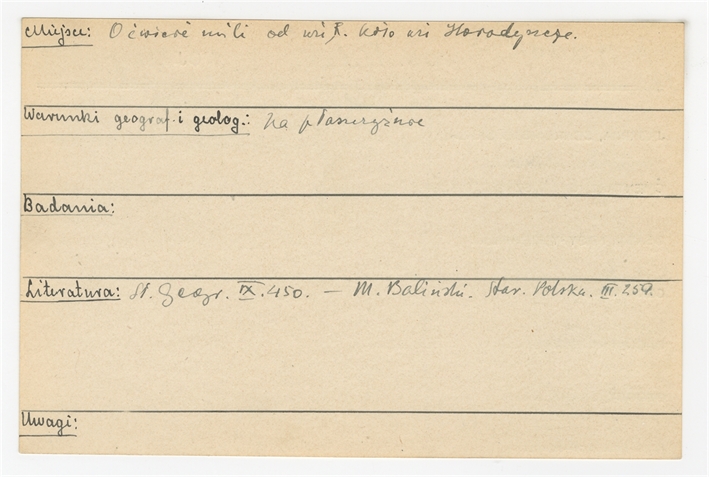 Miejsce: O ćwierć mili od wsi R. koło wsi Horodyszcze.
Warunki geograf. i geolog.: na płaszczyźnie
Badania:
Literatura: Sł. Geogr. IX. 450. — M. Baliński. Star. Polska. III. 259.
Uwagi: